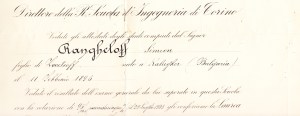 Direttore della R. Scuola d'Ingegneria di Torino
Veduto gli attestati degli studi compiuti dal Signor
Rangheloff Simeon
figlio di nato a (Bulgaria)
il 18 Febbraio 1896
Veduto il risultato dell'esame generale da lui superato in questa Scuola
con la votazione di gli conferiamo la Laurea